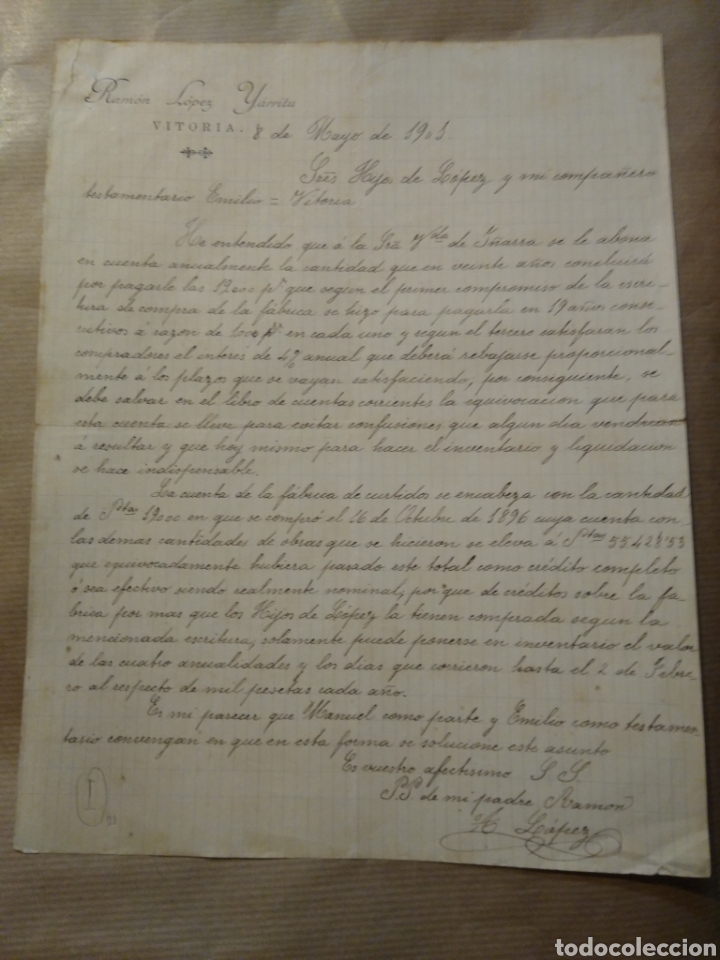 Ramón López Yárritu
VITORIA. 8 de Mayo de 1901.
Sres Hijos de López y mi compañero
testamentario Emilio = Vitoria
He entendido que á la Sra Vda de Iñarra se le abona
en cuenta anualmente la cantidad que en veinte años concluirá
por pagarle las 19000 pts que segun el primer compromiso de la escri-
tura de compra de la fábrica se hizo para pagarla en 19 años conse-
cutivos á razon de 1000 pts en cada uno y segun el tercero satisfaran los
compradores el interés de 4% anual que deberá rebajarse proporcional-
mente á los plazos que se vayan satisfaciendo, por consiguiente, se
debe salvar en el libro de cuentas corrientes la equivocacion que para
esta cuenta se lleve para evitar confusiones que algun dia vendrian
á resultar y que hoy mismo para hacer el inventario y liquidacion
se hace indispensable.
La cuenta de la fábrica de curtidos se encabeza con la cantidad
de Ptas 19000 en que se compró el 26 de Octubre de 1896 cuya cuenta con
las demas cantidades de obras que se hicieron se eleva á Ptas 55428'53
que equivocadamente hubiera pasado este total como crédito completo
ó sea efectivo siendo realmente nominal, porque de créditos sobre la fá-
brica por mas que los Hijos de López la tienen comprada segun la
mencionada escritura, solamente puede ponerse en inventario el valor
de las cuatro anualidades y los dias que corrieron hasta el 2 de Febre-
ro al respecto de mil pesetas cada año.
Es mi parecer que Manuel como parte y Emilio como testamen-
tario convengan en que en esta forma se solucione este asunto
Es vuestro afectisimo S. S.
P.P. de mi padre Ramon
López
1
todocoleccion